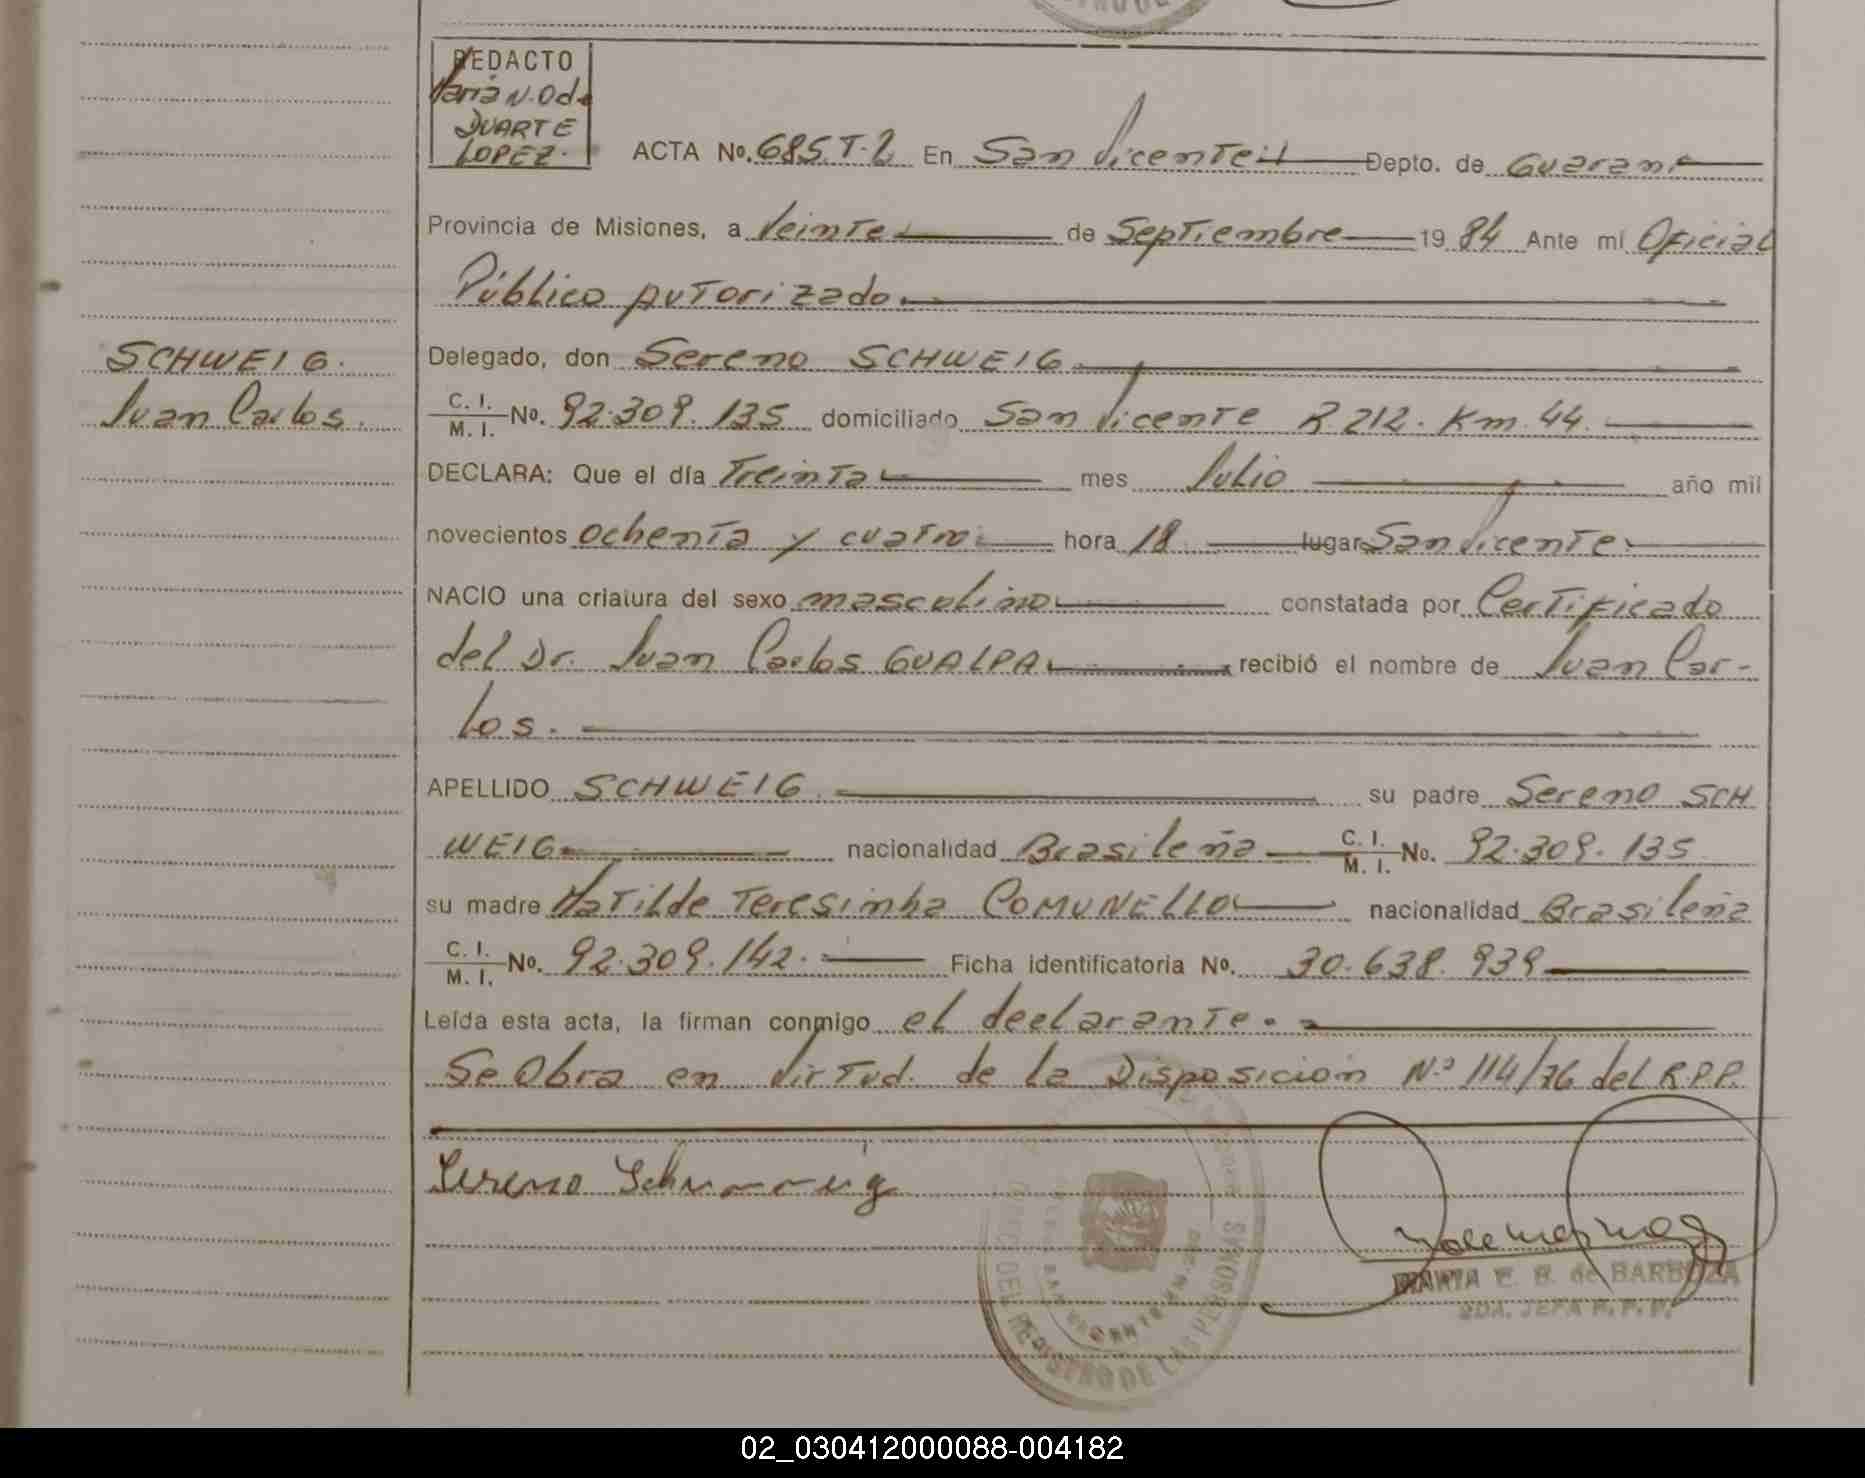 REDACTO
María N. O de
DUARTE
LOPEZ.
ACTA No. 685 T-2 En San Vicente Depto. de Guaraní
Provincia de Misiones, a Veinte de Septiembre 19 84 Ante mí Oficial
Público autorizado
SCHWEIG.
Juan Carlos.
Delegado, don Sereno SCHWEIG
C. I. / M. I. No. 92.309.135 domiciliado San Vicente R. 212. Km. 44.
DECLARA: Que el día Treinta mes Julio año mil
novecientos ochenta y cuatro hora 18 lugar San Vicente
NACIO una criatura del sexo masculino constatada por Certificado
del Dr. Juan Carlos GUALPA recibió el nombre de Juan Car-
los.
APELLIDO SCHWEIG su padre Sereno SCH
WEIG nacionalidad Brasileña C. I. / M. I. No. 92.309.135
su madre Matilde Teresinha COMUNELLO nacionalidad Brasileña
C. I. / M. I. No. 92.309.142. Ficha identificatoria No. 30.638.939
Leída esta acta, la firman conmigo el declarante.
Se Obra en virtud de la Disposición N.º 114/76 del R.P.P.
Sereno Schweig
MARTA E. B. de BARBOZA
2DA. JEFA R. P. P.
REGISTRO DE LAS PERSONAS
02_030412000088-004182